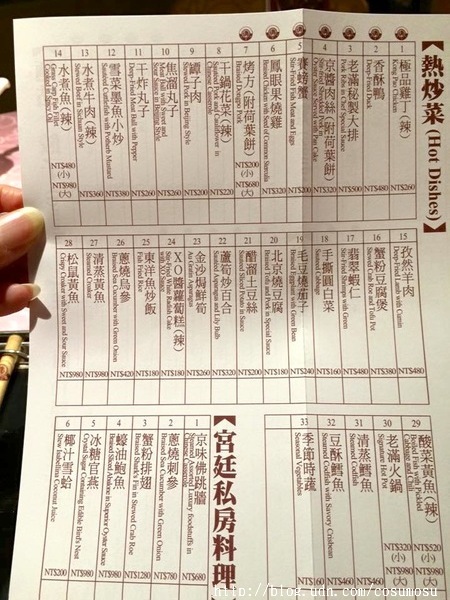 熱炒菜 (Hot Dishes)
1
極品雞 (辣)
Kung Pao Chicken
NT$260
2
香酥鴨
Deep-Fried Duck
NT$480
3
老滿秘製大排
Pork Ribs in Chef Special Sauce
NT$500
4
京醬肉絲 (附荷葉餅)
NT$320
5
賽螃蟹
Stir-Fried Fish Meat and Eggs
NT$200
6
鳳眼果燒雞
NT$320
7
烤方 (附荷葉餅)
NT$200 (小)
NT$680 (大)
8
干鍋花菜 (辣)
NT$220
9
罈子肉
Stewed Pork in Beijing Style
NT$200
10
焦溜丸子
Meat Ball with Sweet and Sour Sauce
NT$260
11
干炸丸子
Deep-Fried Meat Ball with Pepper
NT$260
12
雪菜墨魚小炒
Sauteed Cuttlefish with Potherb Mustard
NT$320
13
水煮牛肉 (辣)
Stewed Beef in Sichuan Style
NT$360
14
水煮魚 (辣)
Grass Carp Fish Fillet Cooked in Spicy Oil
NT$480 (小)
NT$980 (大)
15
孜然羊肉
Deep-Fried Lamb with Cumin
NT$480
16
蟹粉豆腐煲
Stewed Crab Roe and Tofu Pot
NT$380
17
翡翠蝦仁
Stir-Fried Shrimps with Green
NT$480
18
手撕圓白菜
Sauteed Cabbage
NT$160
19
毛豆燒茄子
Braised Eggplant with Green Bean
NT$240
20
北京燒豆腐
Braised Tofu and Pork in Special Sauce
NT$180
21
醋溜土豆絲
Sauteed Sliced Potato in Sauce
NT$200
22
蘆筍炒百合
Sauteed Asparagus and Lily Bulb
NT$240
23
金沙焗鮮筍
Au Gratin Asparagus
NT$240
24
XO醬蘿蔔糕 (辣)
Stir-Fried White Radish Cake with XO Sauce
NT$180
25
東洋魚炒飯
Fish Fried Rice
NT$180
26
蔥燒烏參
Braised Sea Cucumber with Green Onion
NT$420
27
清蒸黃魚
Steamed Croaker
NT$980
28
松鼠黃魚
Crispy Croaker with Sweet and Sour Sauce
NT$980
29
酸菜黃魚 (辣)
NT$520 (小)
NT$980 (大)
30
老滿火鍋
Signature Hot Pot
NT$320 (小)
NT$980 (大)
31
清蒸鱈魚
Steamed Codfish
NT$460
32
豆酥鱈魚
Steamed Codfish with Savory Crisbean
NT$460
33
季節時蔬
Seasonal Vegetables
NT$160
宮廷私房料理
1
京味佛跳牆
Steamed Assorted Luxury foodstuffs in Chinese Casserole
NT$680
2
蔥燒刺參
Braised Sea Cucumber with Green Onion
NT$780
3
蟹粉排翅
Braised Shark's Fin in Stewed Crab Roe
NT$1280
4
蠔油鮑魚
Braised Sliced Abalone in Superior Oyster Sauce
NT$980
5
冰糖官燕
Crystal Sugar Containing Edible Bird's Nest
NT$980
6
椰汁雪蛤
Stew Hasima in Coconut Juice
NT$200
http://blog.udn.com/cosumosu